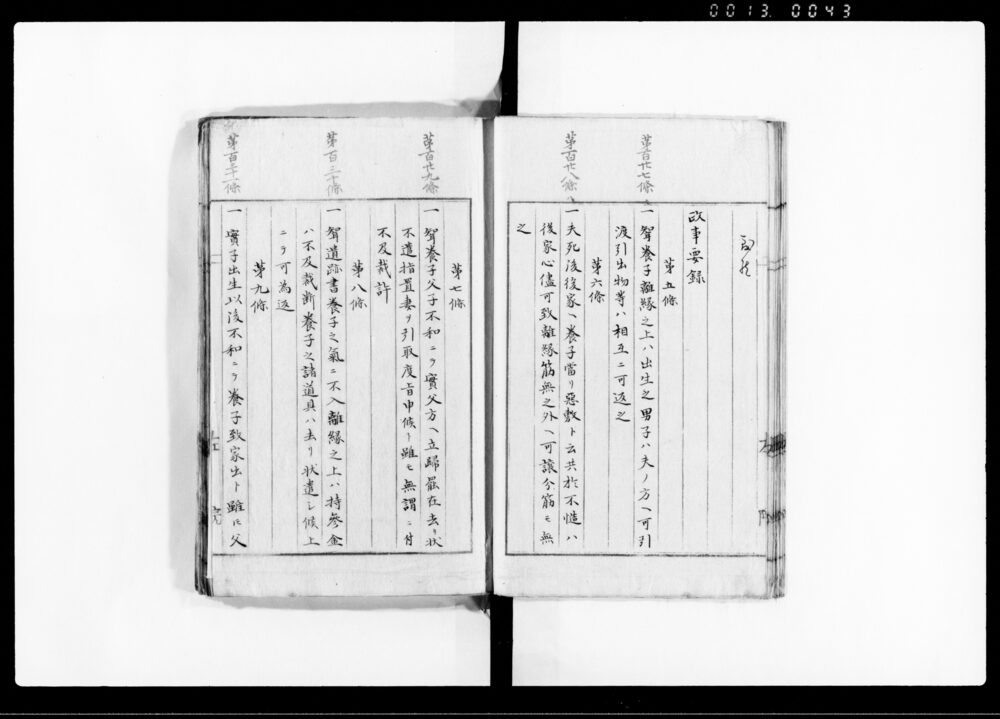 0013. 0043
故事要録
第五條
第百廿七條
一 聟養子離縁之上ハ出生之男子ハ夫ノ方ヘ可引
渡引出物等ハ相互ニ可返之
第六條
第百廿八條
一 夫死後後家ヘ養子當リ惡敷ト云共於不慥ハ
後家心儘可致離縁筋無之外ヘ可讓今筋モ無
之
第七條
第百廿九條
一 聟養子父子不和ニテ實父方ヘ立歸罷在去リ状
不遣指置妻ヲ引取度旨申候ト雖モ無謂ニ付
不及裁許
第八條
第百三十條
一 聟遺跡書養子之氣ニ不入離縁之上ハ持參金
ハ不及裁断養子之諸道具ハ去リ状遣シ候上
ニテ可為返
第九條
第百三十一條
一 實子出生以後不和ニテ養子致家出ト雖ドモ父